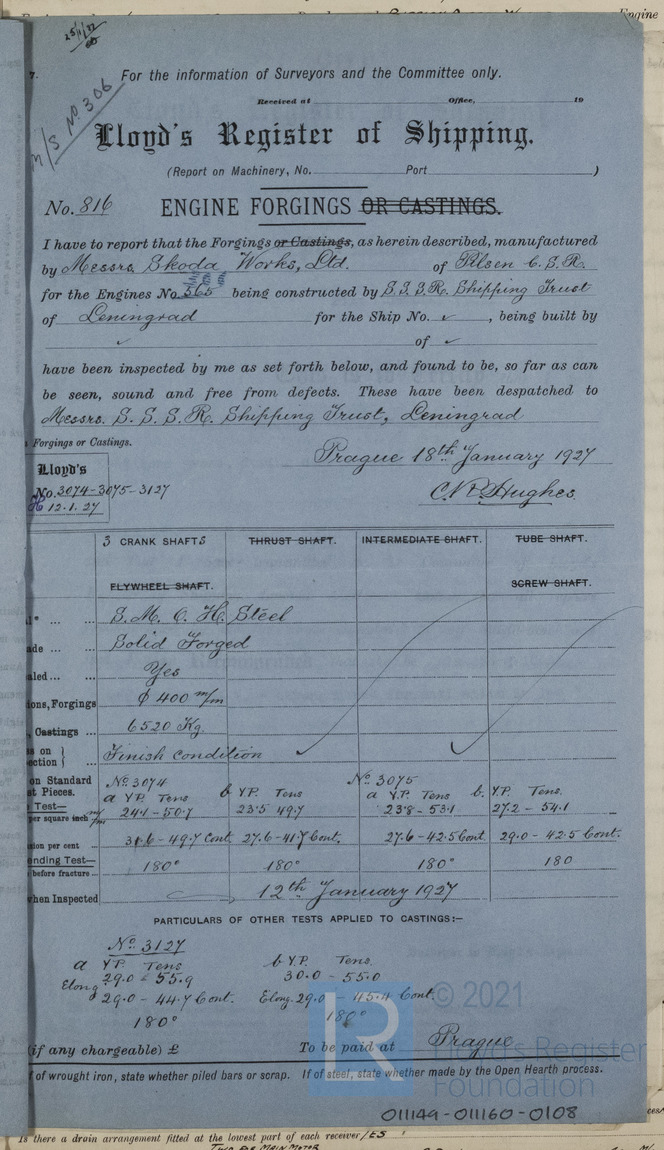 25/1/27
M/S No 306
7.
For the information of Surveyors and the Committee only.
Received at Office, 19
Lloyd's Register of Shipping.
(Report on Machinery, No. Port )
No. 816 ENGINE FORGINGS OR CASTINGS.
I have to report that the Forgings or Castings, as herein described, manufactured
by Messrs. Skoda Works, Ltd. of Pilsen C.S.R.
for the Engines No. 565 being constructed by S.S.S.R. Shipping Trust
of Leningrad for the Ship No. ✓, being built by
✓ of ✓
have been inspected by me as set forth below, and found to be, so far as can
be seen, sound and free from defects. These have been despatched to
Messrs. S.S.S.R. Shipping Trust, Leningrad
Forgings or Castings.
Prague 18th January 1927
Lloyd's
No. 3074-3075-3127
12.1.27
Hughes
3 CRANK SHAFTS THRUST SHAFT. INTERMEDIATE SHAFT. TUBE SHAFT.
FLYWHEEL SHAFT. SCREW SHAFT.
S.M.O.H. Steel
ade ... ... Solid Forged
aled ... ... Yes
ions, Forgings ϕ 400 m/m
, Castings ... 6520 Kg.
s on }
ection } Finish condition
on Standard No. 3074 No. 3075
t Pieces. a Y.P. Tens b Y.P. Tens a Y.P. Tens b. Y.P. Tens.
Test— 24.1 - 50.7 23.5 49.7 23.8 - 53.1 27.2 - 54.1
per square inch m/m
sion per cent ... 31.6 - 49.7 Cont. 27.6 - 41.7 Cont. 27.6 - 42.5 Cont. 29.0 - 42.5 Cont.
ending Test— 180° 180° 180° 180
before fracture ...
when Inspected 12th January 1927
PARTICULARS OF OTHER TESTS APPLIED TO CASTINGS:-
No. 3127
a Y.P. Tens b Y.P. Tens.
29.0 - 55.9 30.0 - 55.0
Elong 29.0 - 44.7 Cont. Elong. 29.0 - 45.4 Cont.
180° 180°
(if any chargeable) £ To be paid at Prague
f of wrought iron, state whether piled bars or scrap. If of steel, state whether made by the Open Hearth process.
© 2021
LR
Lloyd's Register
Foundation
011149-011160-0108
Is there a drain arrangement fitted at the lowest part of each receiver YES